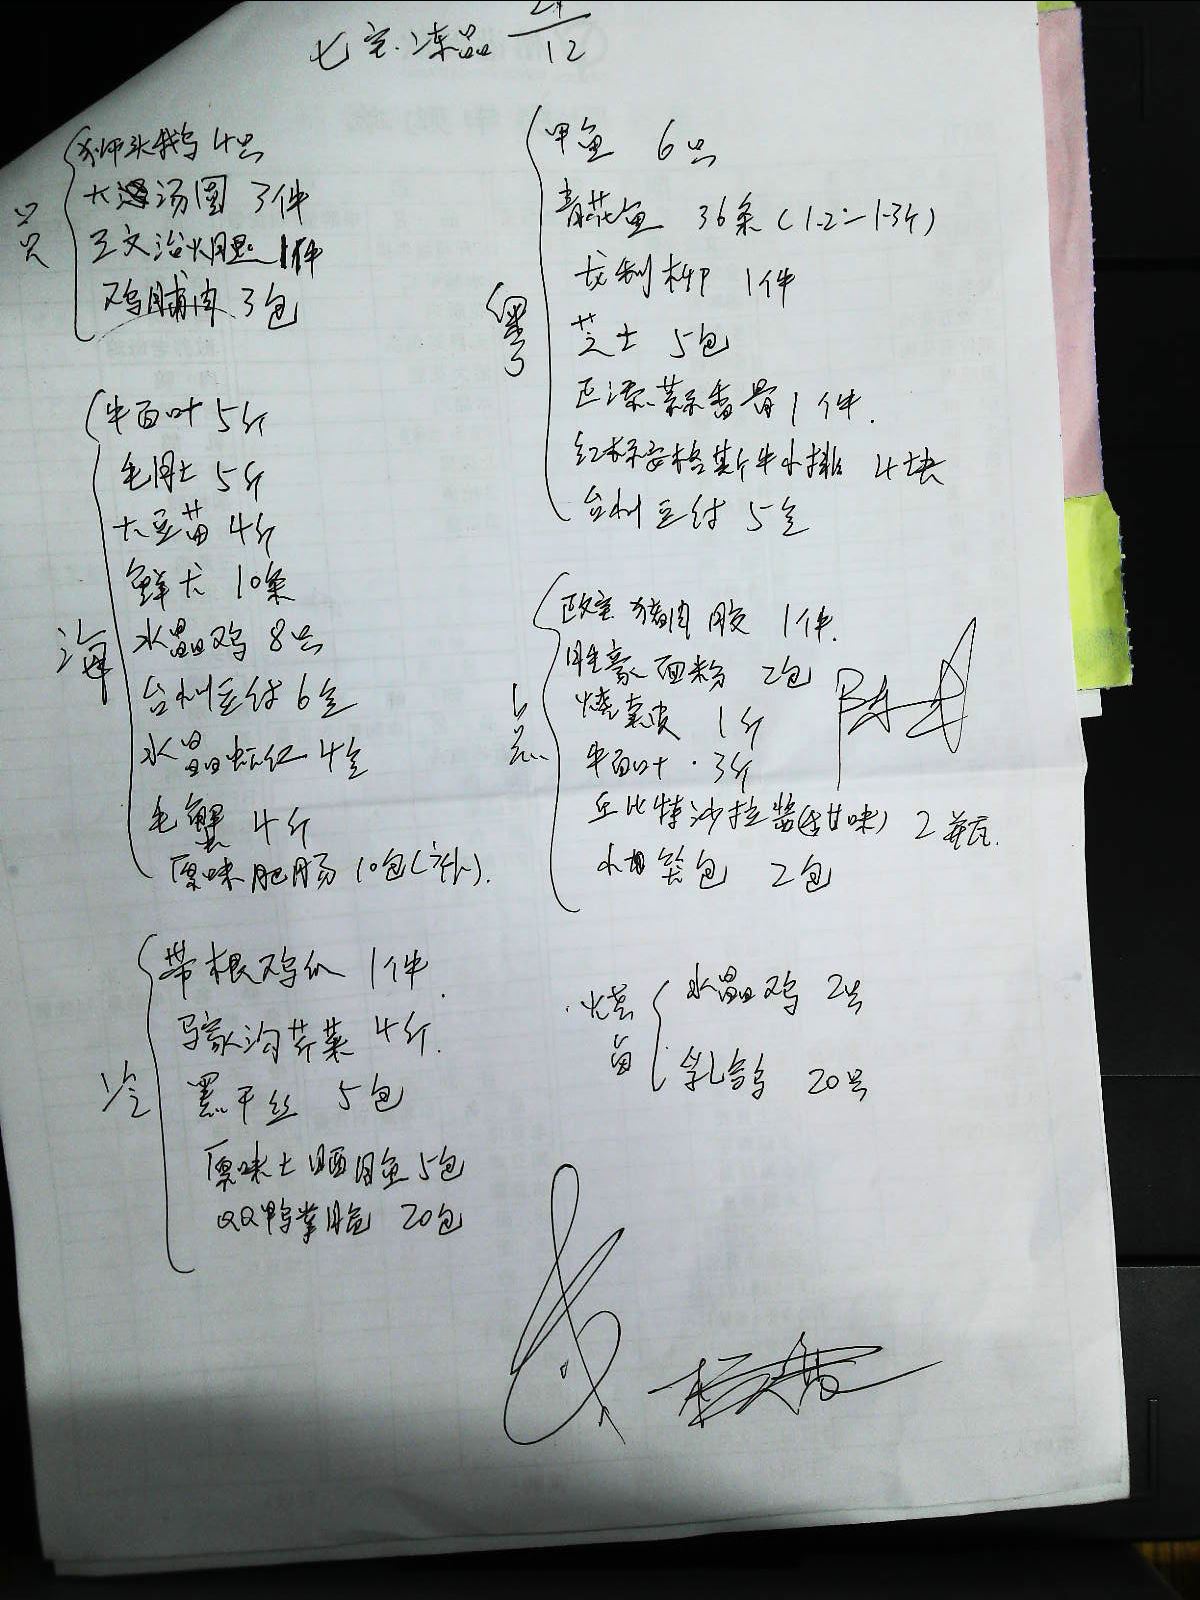 七宝.冻品 /12
狮头鹅 4只
大汤圆 3件
王文治火腿 1件
鸡脯肉 3包
海
牛百叶 5斤
毛肚 5斤
大豆苗 4斤
鲜尤 10条
水晶鸡 8只
台州豆付 6仝
水晶虾仁 4仝
毛蟹 4斤
原味肥肠 10包
冷
带根鸡爪 1件.
马家沟芹菜 4斤.
黑干丝 5包
原味土晒 5包
QQ鸭掌 20包
粤
甲鱼 6只
青花鱼 36条(1.2-1.3斤)
柳 1件
芝士 5包
正漂蒜香骨 1件.
红标安格斯牛小排 4块
台州豆付 5仝
点
猪肉 1件.
面粉 2包
烧卖皮 1斤
牛百叶 . 3斤
丘比特沙拉酱(香甘味) 2瓶.
水晶包 2包
陈
烧卤
水晶鸡 2只
乳鸽 20只